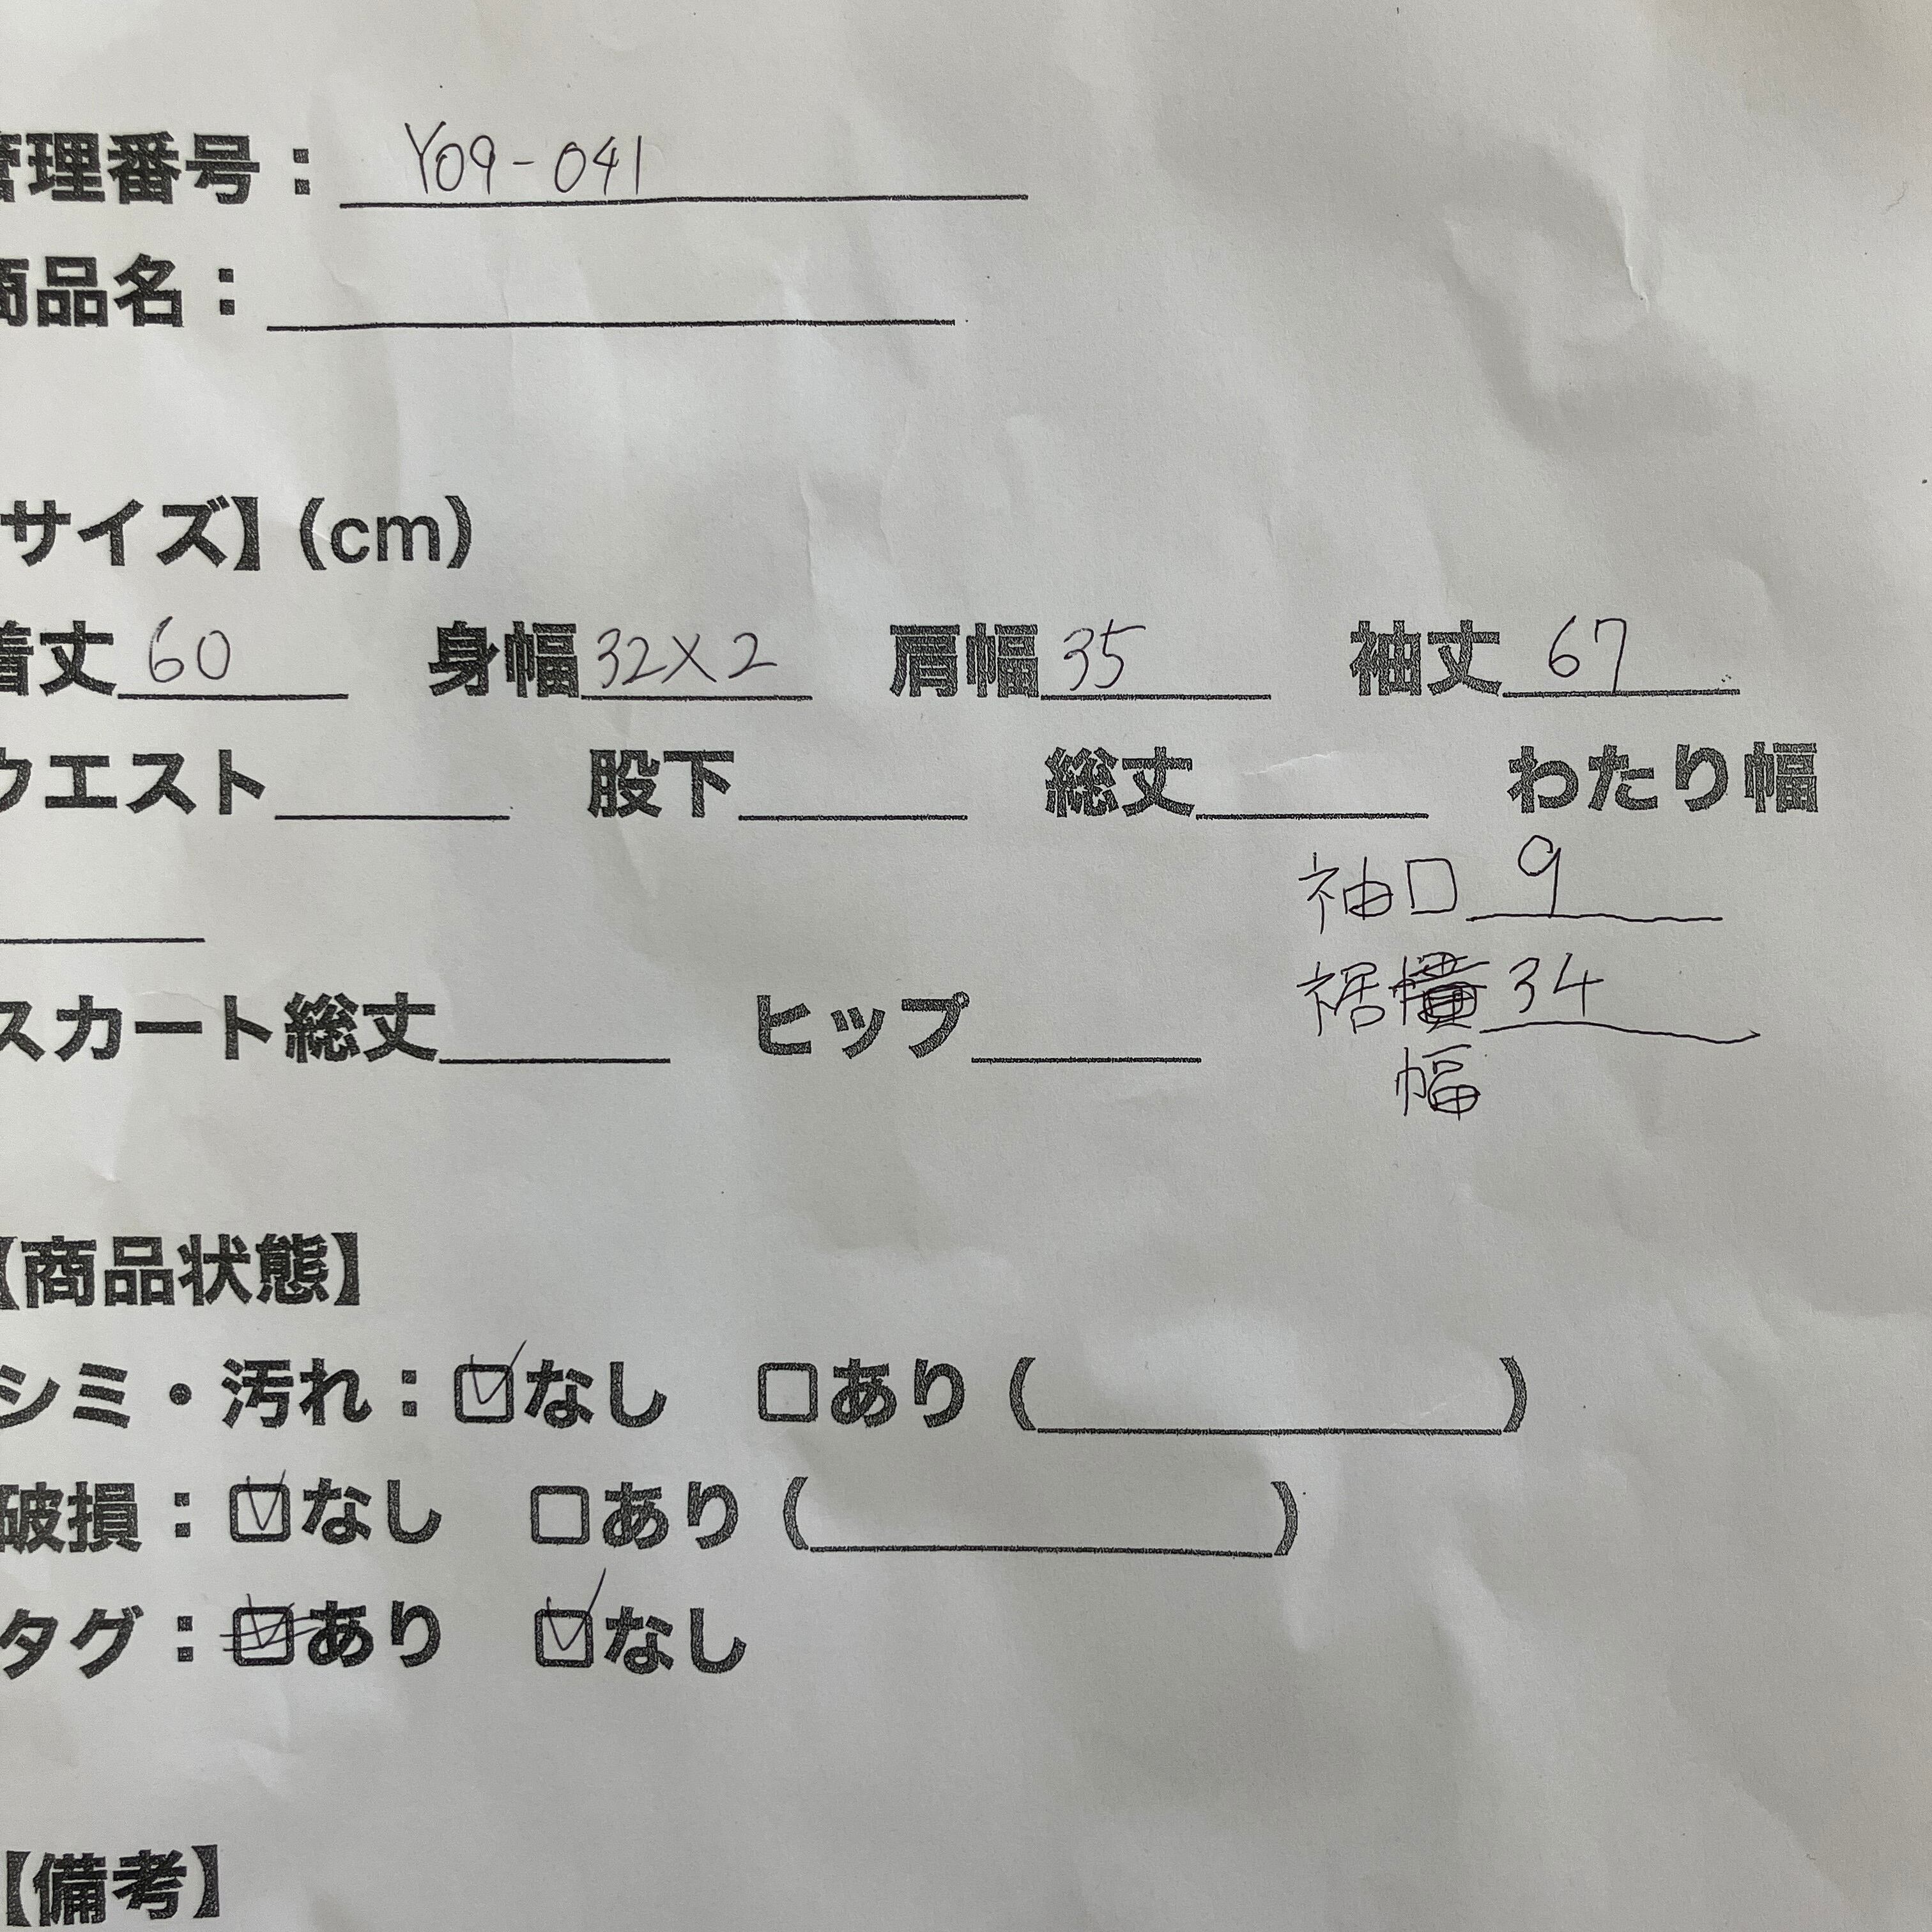 管理番号： Y09-041
商品名：
サイズ】(cm)
着丈 60 身幅 32×2 肩幅 35 袖丈 67
ウエスト 股下 総丈 わたり幅
袖口 9
スカート総丈 ヒップ 裾 34
幅
【商品状態】
シミ・汚れ：☑なし □あり( )
破損：☑なし □あり( )
タグ：☑あり ☑なし
【備考】